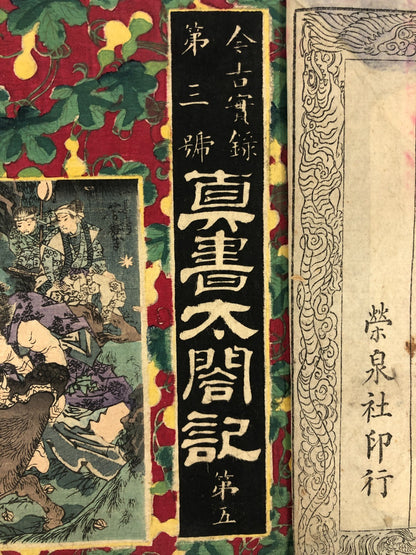 今古實録
第三號
真書太閤記
第五
榮泉社印行